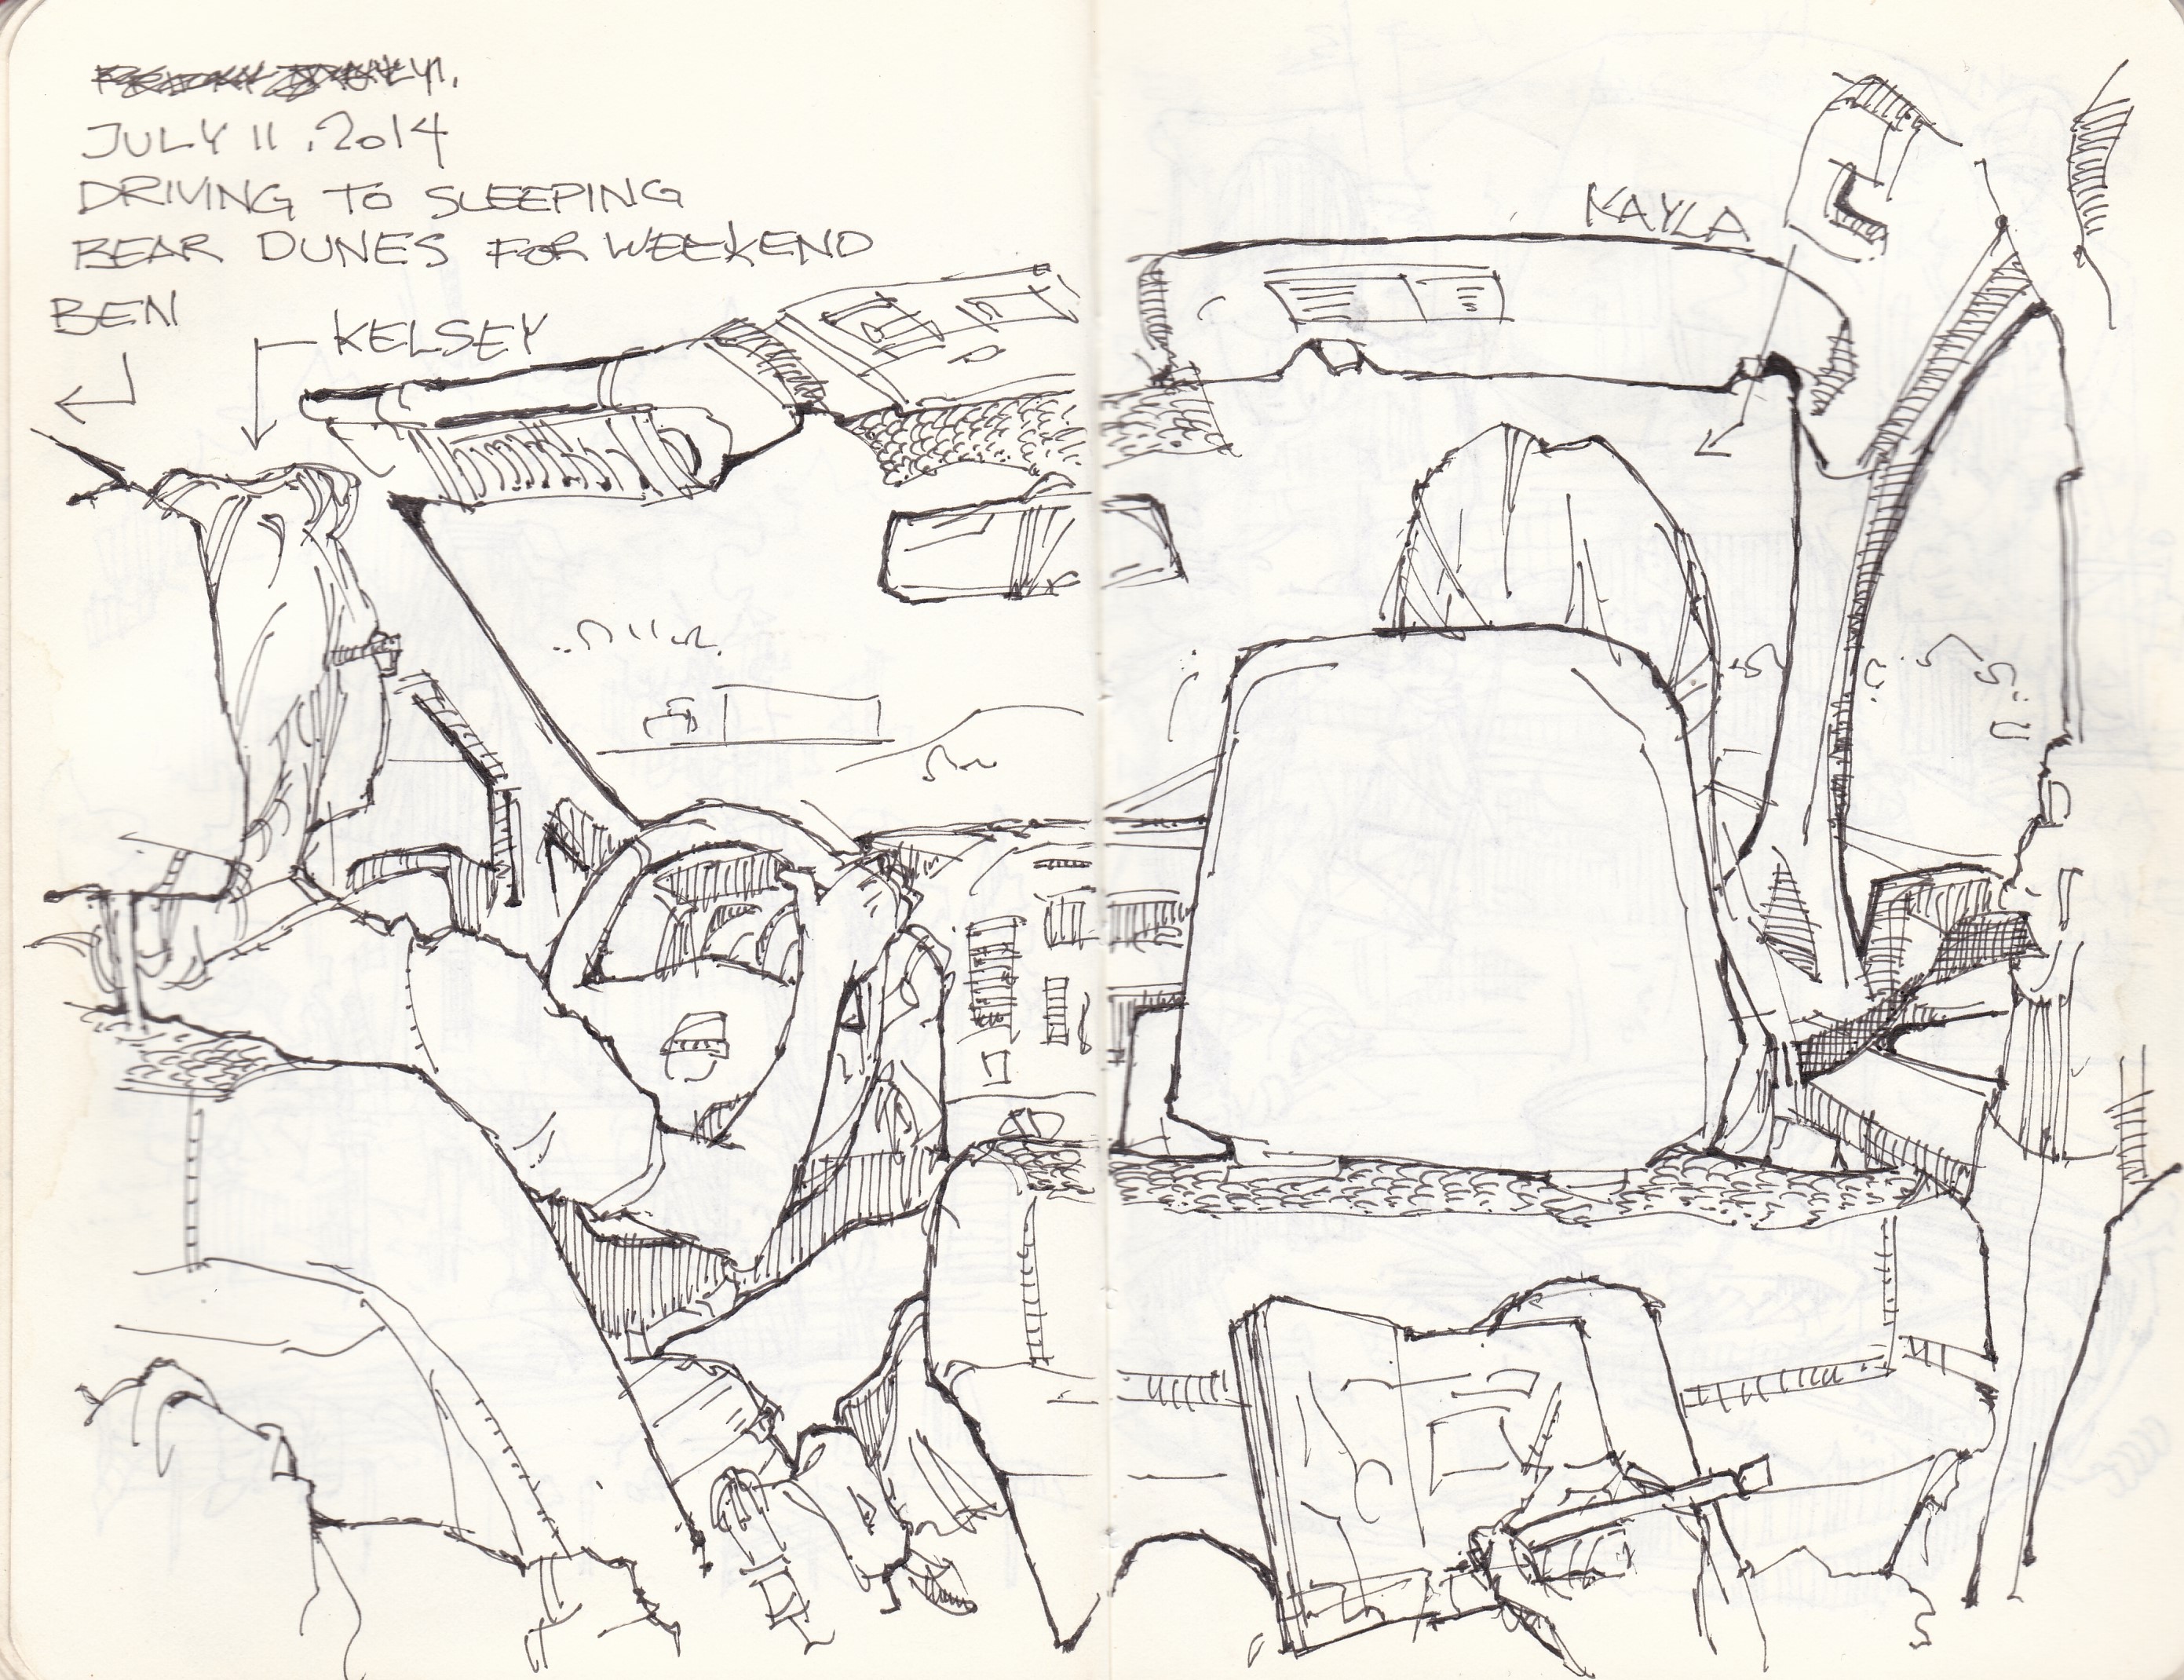 JULY 11, 2014
DRIVING TO SLEEPING
BEAR DUNES FOR WEEKEND
BEN
KELSEY
KAYLA